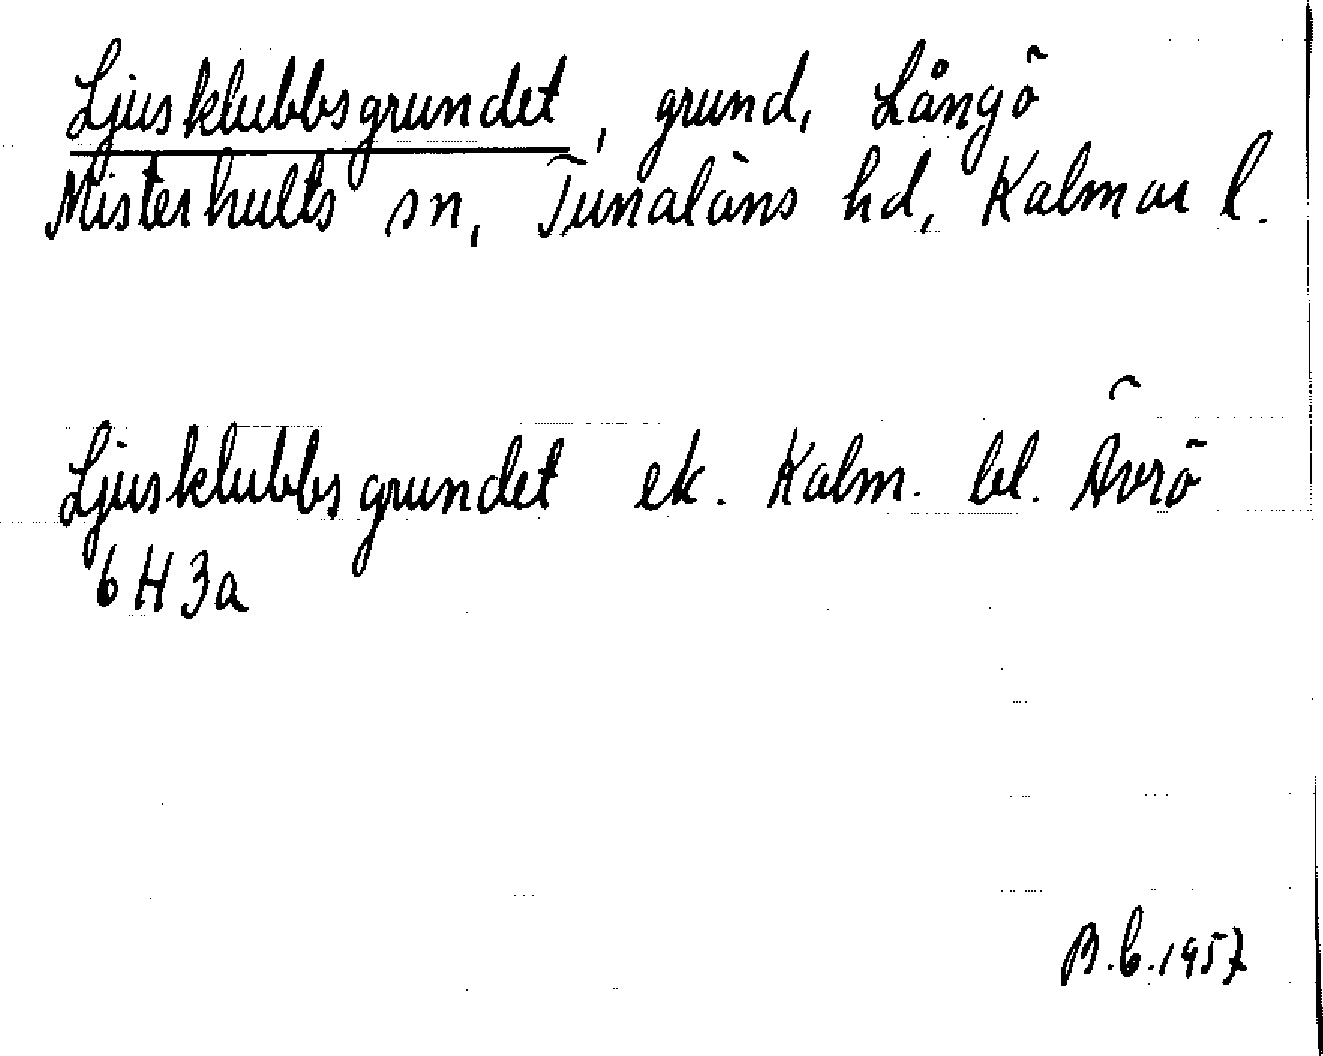 Ljusklubbsgrundet, grund, Långö
Misterhults sn, Tunaläns hd, Kalmar l.
Ljusklubbsgrundet ek. Kalm. bl. Ävrö
6H3a
B.b.1957